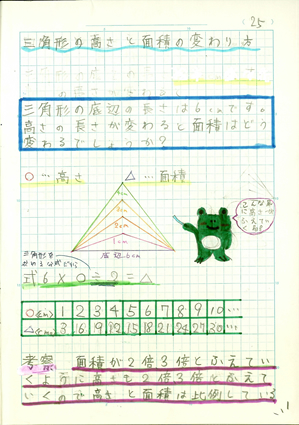 (25)
三角形の高さと面積の変わり方
三角形の底辺の長さは6cmです。
高さの長さが変わると面積はどう
変わるでしょうか?
○…高さ △…面積
4cm
3cm
2cm
1cm
底辺6cm
こんな風
に高さが
ふえてい
くね
三角形を
求める公式だから
式6×○÷2=△
○(cm) 1 2 3 4 5 6 7 8 9 10 …
3 6 9 12 15 18 21 24 27 30 …
考察 面積が2倍3倍とふえてい
くように高さも2倍3倍とふえて
いくので高さと面積は比例している